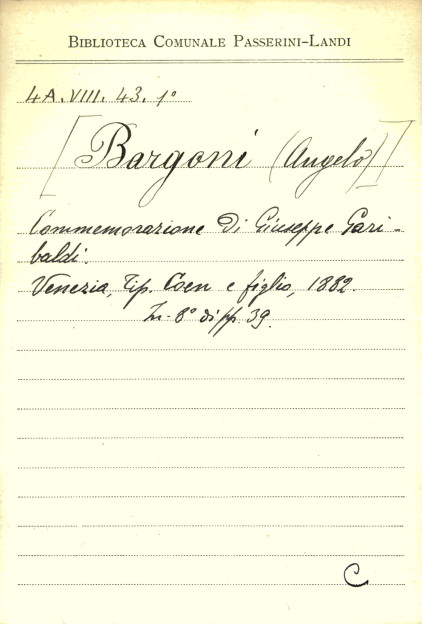 BIBLIOTECA COMUNALE PASSERINI-LANDI
4A.VIII. 43. 1°
[Bargoni (Angelo)]
Commemorazione di Giuseppe Gari-
baldi.
Venezia, Tip. Coen e figlio, 1882.
In-8° di pp. 39.
C